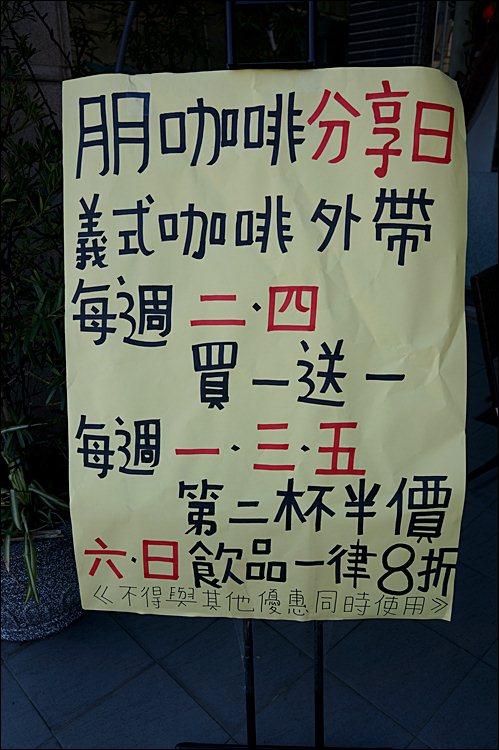 朋咖啡分享日
義式咖啡外帶
每週二·四
買一送一
每週一·三·五
第二杯半價
六·日飲品一律8折
《不得與其他優惠同時使用》